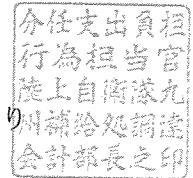 分任支出負担
行為担当官
陸上自衛隊九
り州補給処調達
会計部長之印